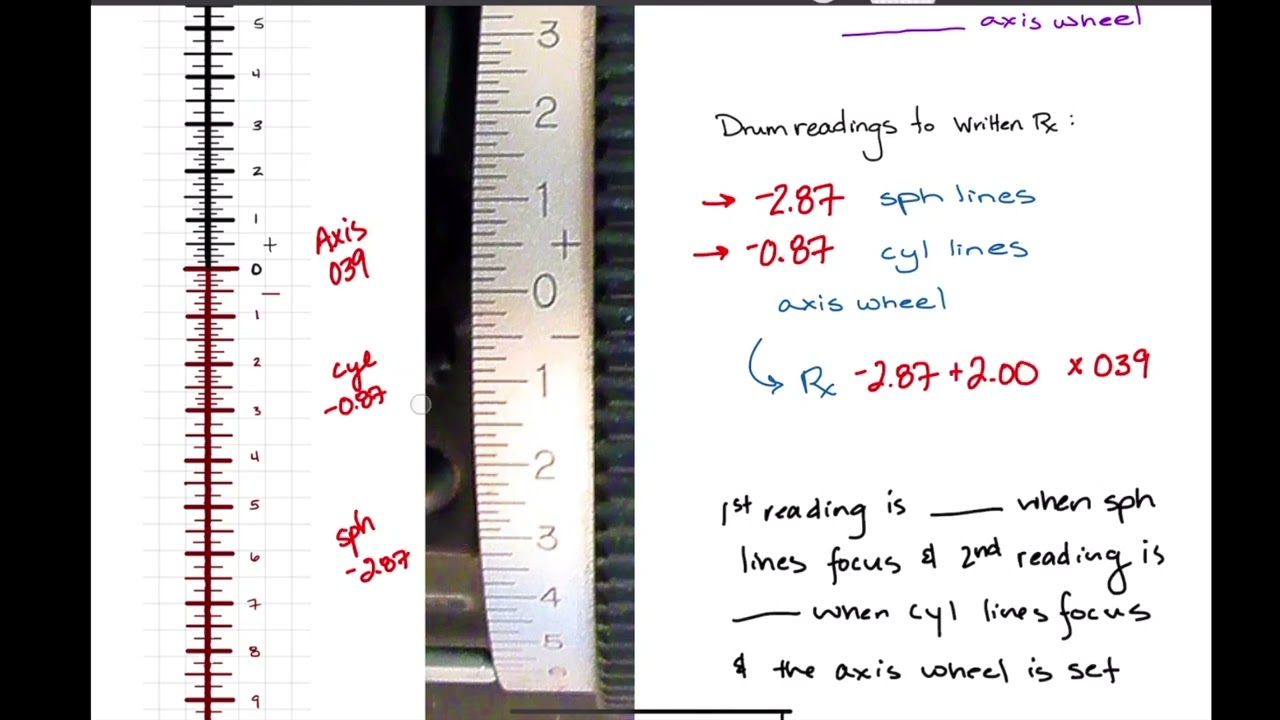 5
4
3
2
1
+
0
−
1
2
3
4
5
6
7
8
9
Axis
039
cyl
-0.87
sph
-2.87
3
2
1
+
0
−
1
2
3
4
5
_____ axis wheel
Drum readings to Written Rx :
→ -2.87 sph lines
→ -0.87 cyl lines
axis wheel
Rx -2.87 +2.00 x 039
1st reading is ____ when sph
lines focus & 2nd reading is
____ when cyl lines focus
& the axis wheel is set